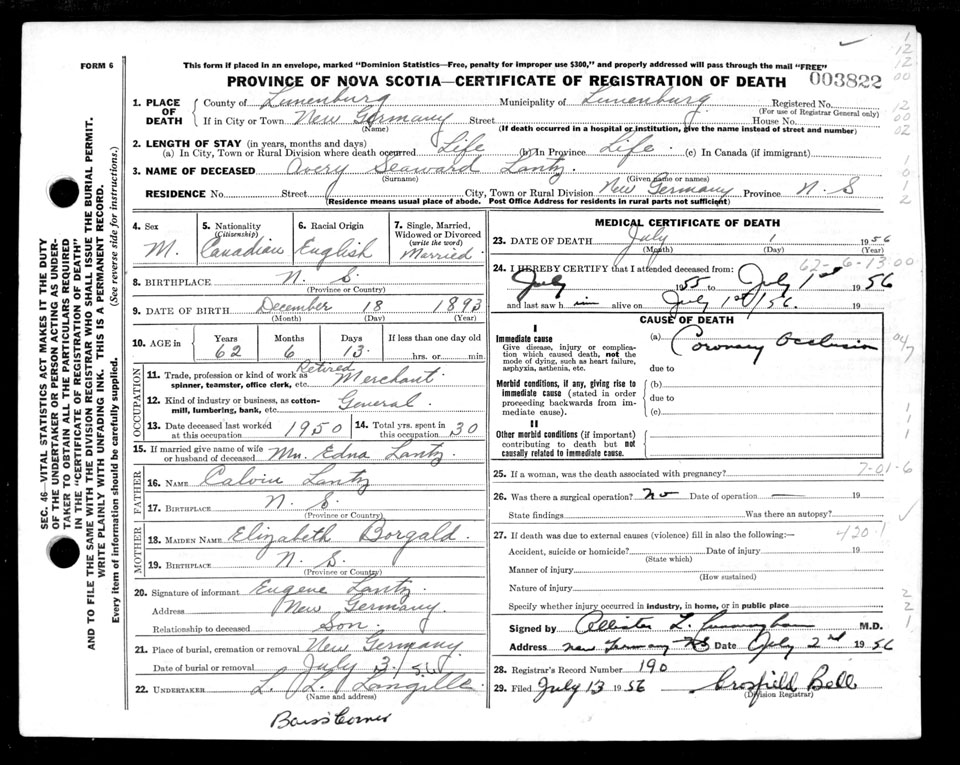 FORM 6
This form if placed in an envelope, marked "Dominion Statistics—Free, penalty for improper use $300," and properly addressed will pass through the mail "FREE"
PROVINCE OF NOVA SCOTIA—CERTIFICATE OF REGISTRATION OF DEATH 003822
1. PLACE OF DEATH County of Lunenburg Municipality of Lunenburg Registered No.
(For use of Registrar General only)
If in City or Town New Germany Street House No.
(Name) (If death occurred in a hospital or institution, give the name instead of street and number)
2. LENGTH OF STAY (in years, months and days)
(a) In City, Town or Rural Division where death occurred Life (b) In Province Life (c) In Canada (if immigrant)
3. NAME OF DECEASED Avery Seaward Lantz
(Surname) (Given name or names)
RESIDENCE No. Street City, Town or Rural Division New Germany Province N. S
(Residence means usual place of abode. Post Office Address for residents in rural parts not sufficient)
4. Sex M.
5. Nationality (Citizenship) Canadian
6. Racial Origin English
7. Single, Married, Widowed or Divorced (write the word) Married
8. BIRTHPLACE N. S
(Province or Country)
9. DATE OF BIRTH December 18 1893
(Month) (Day) (Year)
10. AGE in Years Months Days If less than one day old
62 6 13 hrs. or min.
OCCUPATION
11. Trade, profession or kind of work as spinner, teamster, office clerk, etc. Retired Merchant
12. Kind of industry or business, as cotton-mill, lumbering, bank, etc. General
13. Date deceased last worked at this occupation 1950 14. Total yrs. spent in this occupation 30
15. If married give name of wife or husband of deceased Mrs. Edna Lantz
FATHER
16. NAME Calvin Lantz
17. BIRTHPLACE N. S.
(Province or Country)
MOTHER
18. MAIDEN NAME Elizabeth Borgald
19. BIRTHPLACE N. S.
(Province or Country)
20. Signature of informant Eugene Lantz
Address New Germany
Relationship to deceased Son
21. Place of burial, cremation or removal New Germany
Date of burial or removal July 3/56
22. UNDERTAKER L. L. Langille
(Name and address)
Barss Corner
MEDICAL CERTIFICATE OF DEATH
23. DATE OF DEATH July 1 1956
(Month) (Day) (Year)
62-6-13 00
24. I HEREBY CERTIFY that I attended deceased from:
July 1955 to July 1st 1956
and last saw him alive on July 1st/56.
CAUSE OF DEATH
I
Immediate cause
Give disease, injury or complication which caused death, not the mode of dying, such as heart failure, asphyxia, asthenia, etc.
(a) Coronary Occlusion
due to
Morbid conditions, if any, giving rise to immediate cause (stated in order proceeding backwards from immediate cause).
(b)
due to
(c)
II
Other morbid conditions (if important) contributing to death but not causally related to immediate cause.
7-01-6
25. If a woman, was the death associated with pregnancy?
26. Was there a surgical operation? no Date of operation — 19
State findings Was there an autopsy?
27. If death was due to external causes (violence) fill in also the following:—
420.1
Accident, suicide or homicide? Date of injury 19
(State which)
Manner of injury
(How sustained)
Nature of injury
Specify whether injury occurred in industry, in home, or in public place
Signed by Allister L. Cunningham M.D.
Address New Germany NS Date July 2nd 1956
28. Registrar's Record Number 190
29. Filed July 13 1956 Crosfield Bell
(Division Registrar)
SEC. 46—VITAL STATISTICS ACT MAKES IT THE DUTY
OF THE UNDERTAKER OR PERSON ACTING AS UNDER-
TAKER TO OBTAIN ALL THE PARTICULARS REQUIRED
IN THE "CERTIFICATE OF REGISTRATION OF DEATH"
AND TO FILE THE SAME WITH THE DIVISION REGISTRAR WHO SHALL ISSUE THE BURIAL PERMIT.
WRITE PLAINLY WITH UNFADING INK. THIS IS A PERMANENT RECORD.
Every item of information should be carefully supplied. (See reverse side for instructions.)
1
12
12
00
12
00
02
1
0
1
2
04
7
1
1
2
2
1